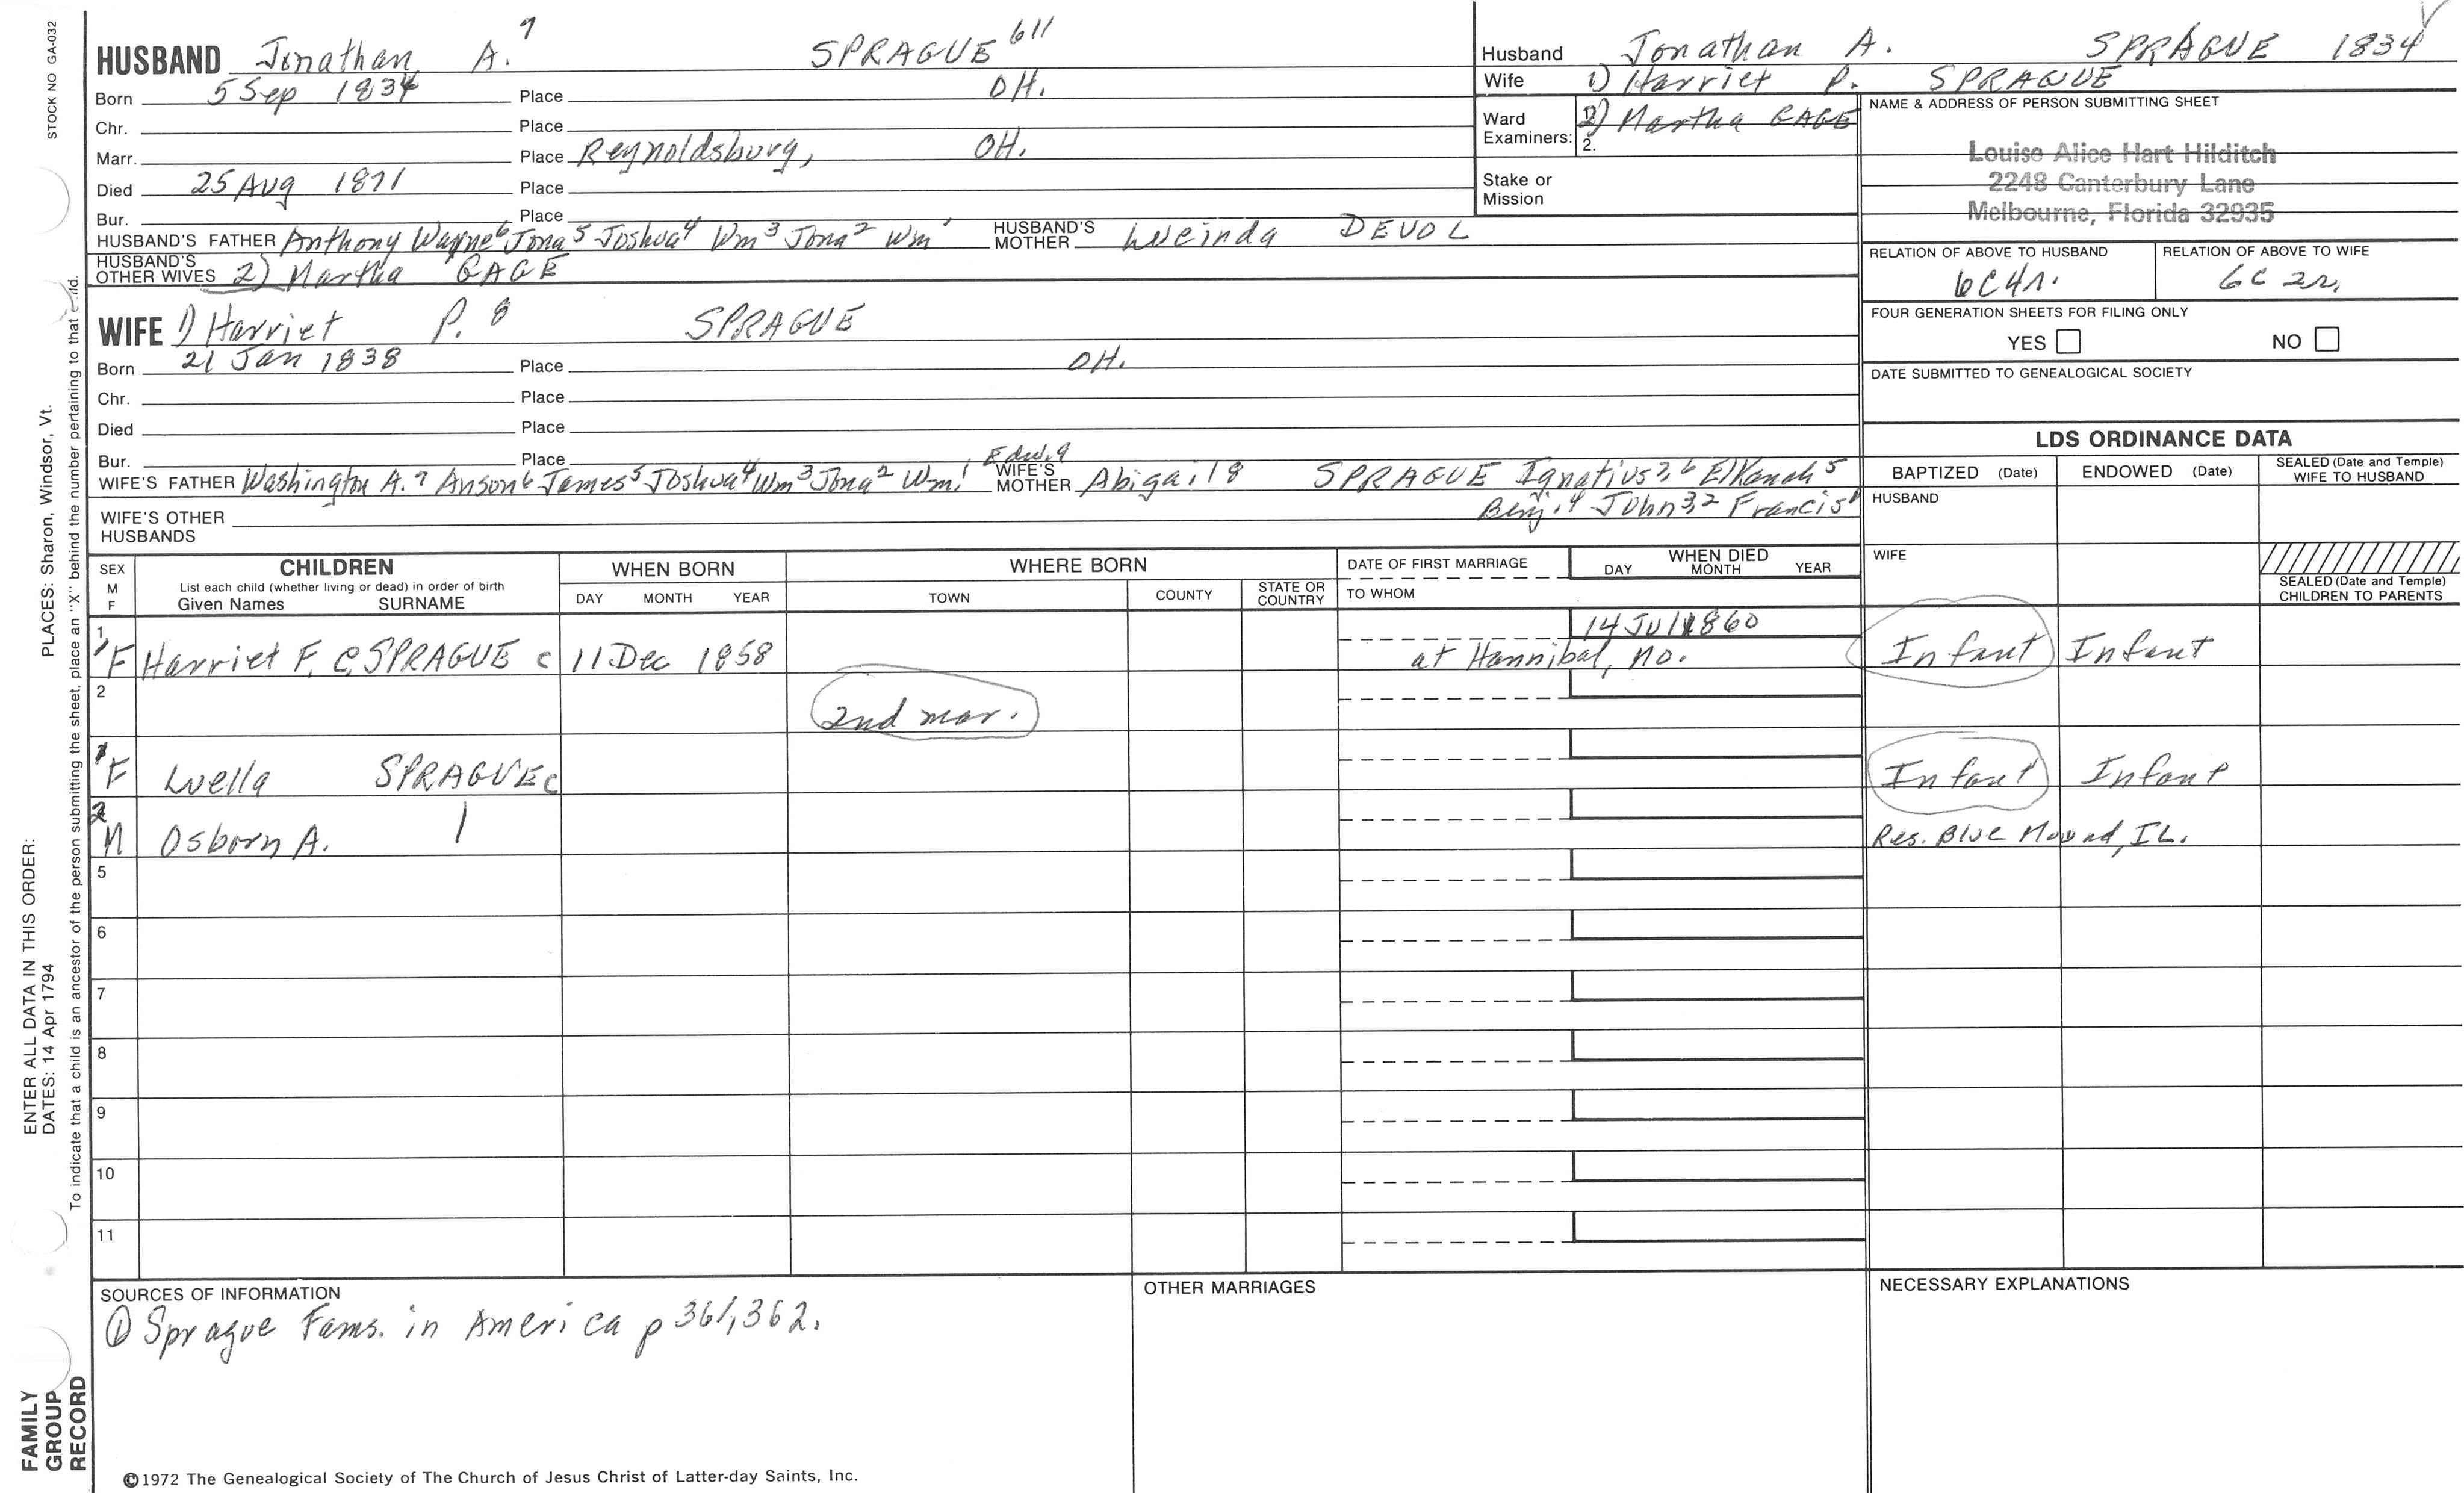 STOCK NO GA-032
HUSBAND Jonathan A.⁷ SPRAGUE 611
Born 5 Sep 1834 Place OH.
Chr. Place
Marr. Place Reynoldsburg, OH.
Died 25 Aug 1871 Place
Bur. Place
HUSBAND'S FATHER Anthony Wayne⁶ Jona⁵ Joshua⁴ Wm³ Jona² Wm¹ HUSBAND'S MOTHER Lucinda DEVOL
HUSBAND'S OTHER WIVES 2) Martha GAGE
WIFE 1) Harriet P. 8 SPRAGUE
Born 21 Jan 1838 Place OH.
Chr. Place
Died Place
Bur. Place
WIFE'S FATHER Washington A.⁷ Anson⁶ James⁵ Joshua⁴ Wm³ Jona² Wm¹ WIFE'S MOTHER Abigail 8 SPRAGUE Ignatius 7, 6 Elkanah⁵
Benj.⁴ John 3,2 Francis¹
WIFE'S OTHER HUSBANDS
Husband Jonathan A. SPRAGUE 1834
Wife 1) Harriet P. SPRAGUE
Ward Examiners: 2) Martha GAGE
2.
Stake or Mission
NAME & ADDRESS OF PERSON SUBMITTING SHEET
Louise Alice Hart Hilditch
2248 Canterbury Lane
Melbourne, Florida 32935
RELATION OF ABOVE TO HUSBAND RELATION OF ABOVE TO WIFE
6C4r. 6C 2r.
FOUR GENERATION SHEETS FOR FILING ONLY
YES NO
DATE SUBMITTED TO GENEALOGICAL SOCIETY
LDS ORDINANCE DATA
BAPTIZED (Date) ENDOWED (Date) SEALED (Date and Temple) WIFE TO HUSBAND
HUSBAND
WIFE
SEALED (Date and Temple) CHILDREN TO PARENTS
SEX M F
CHILDREN
List each child (whether living or dead) in order of birth
Given Names SURNAME
WHEN BORN
DAY MONTH YEAR
WHERE BORN
TOWN COUNTY STATE OR COUNTRY
DATE OF FIRST MARRIAGE
TO WHOM
WHEN DIED
DAY MONTH YEAR
1 F Harriet F. C. SPRAGUE c 11 Dec 1858 14 Jul 1860 at Hannibal, MO. Infant Infant
2 2nd mar.
1 F Luella SPRAGUE c Infant Infant
2 M Osborn A. Res. Blue Mound, IL.
5
6
7
8
9
10
11
SOURCES OF INFORMATION
① Sprague Fams. in America p 361, 362.
OTHER MARRIAGES
NECESSARY EXPLANATIONS
©1972 The Genealogical Society of The Church of Jesus Christ of Latter-day Saints, Inc.
PLACES: Sharon, Windsor, Vt.
ENTER ALL DATA IN THIS ORDER:
DATES: 14 Apr 1794
To indicate that a child is an ancestor of the person submitting the sheet, place an "X" behind the number pertaining to that child.
FAMILY GROUP RECORD